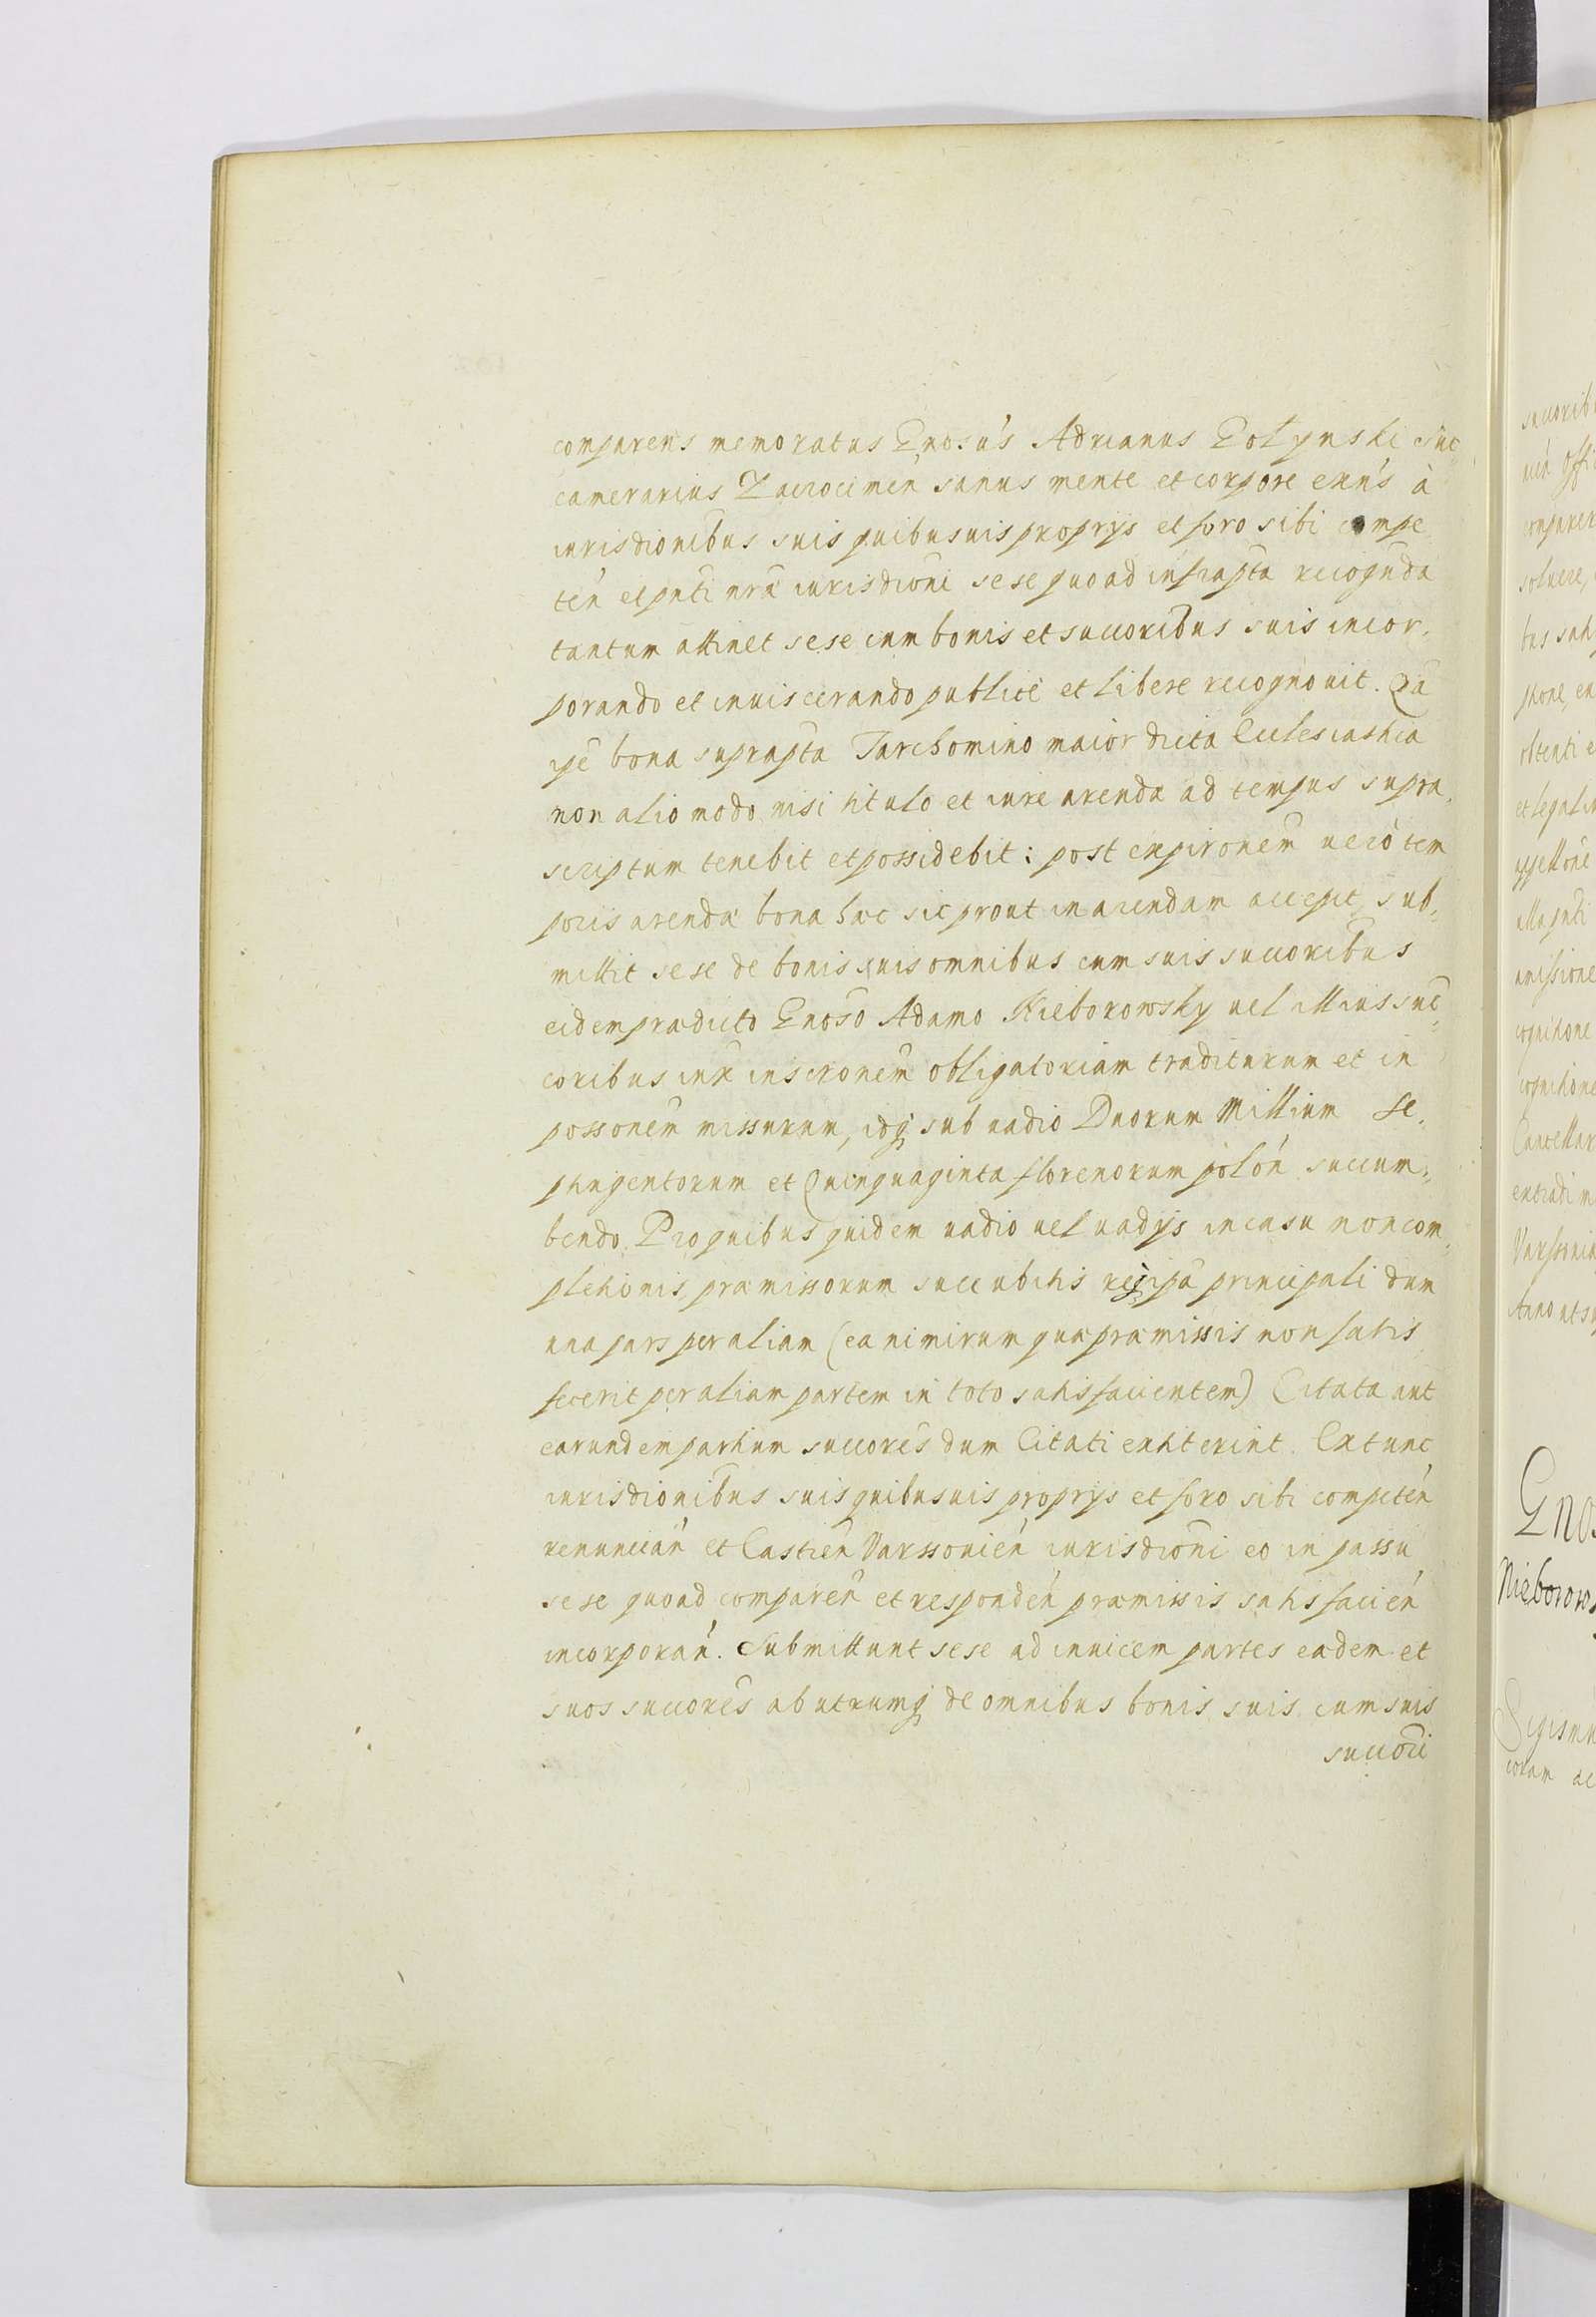 comparens memoratus Gnosus Adrianus Golynski Suc
camerarius Zacrocimen sanus mente et corpore exns à
iurisdionibus suis quibusuis proprijs et foro sibi compe
ten et pnti nrae iurisdioni sese quoad infrapta recognda
tantum attinet sese cum bonis et succoribus suis incor,
porando et inuiscerando publicè et libere recognouit. Qia
ipse bona suprapta Tarchomino maior dicta Ecclesiastica
non alio modo nisi titulo et iure arendae ad tempus supra,
scriptum tenebit et possidebit: post expironem uerò tem
poris arendae bona haec sic prout in arendam accepit, sub,,
mittit sese de bonis suis omnibus cum suis succoribus
eidem praedicto Gnoso Adamo Nieborowsky uel illius suc,,
coribus iux inscronem obligatoriam traditurum et in
possonem missurum, idq sub uadio Duorum Millium Se,
ptingentorum et Quinquaginta florenorum polon succum,,
bendo. Pro quibus quidem uadio uel uadijs in casu non com,,
pletionis praemissorum succubitis principali dum
una pars per aliam (ea nimirum quae praemissis non satis
fecerit per aliam partem in toto satisfacientem) Citata aut
earundem partium succores dum Citati extiterint. Extunc
iurisdionibus suis quibusuis proprijs et foro sibi competen
renuncian et Castren Varssouien iurisdioni eo in passu
sese quoad comparen et responden praemissis satisfacien
incorporan. Submittunt sese ad inuicem partes eaedem et
suos succores ab utrumq de omnibus bonis suis cum suis
succori
Gno
Nieborows
Sigismu
coram ac